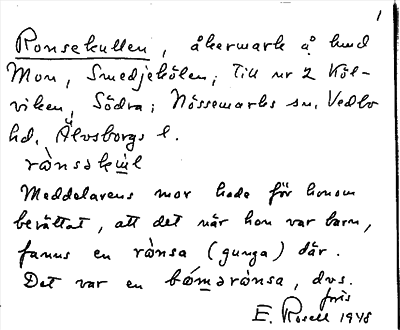 1
Ronsekullen, åkermark å hmd
Mon, Smedjekölen; Till nr 2 Köl-
viken, Södra; Nössemarks sn. Vedbo
hd. Älvsborgs l.
rὰnsəkɯ̀l
Meddelarens mor hade för honom
berättat, att det när hon var barn,
fanns en rὰnsa (gunga) där.
Det var en bǿmərὰnsa, dvs.
E. Rosell 1948